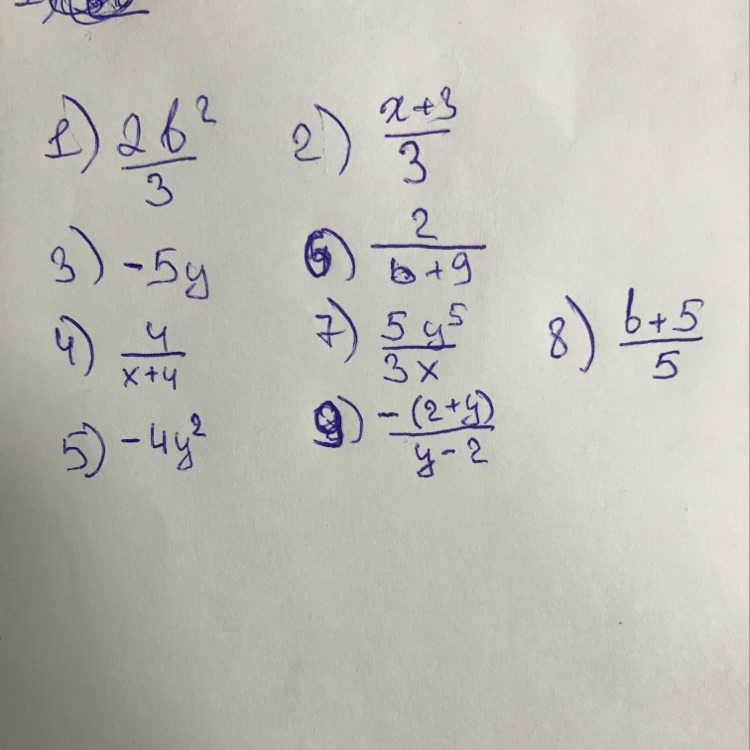 1) 2b²/3 2) x+3/3
3) -5y 6) 2/b+9
4) 4/x+4 7) 5y⁵/3x 8) b+5/5
5) -4y² 9) -(2+y)/y-2